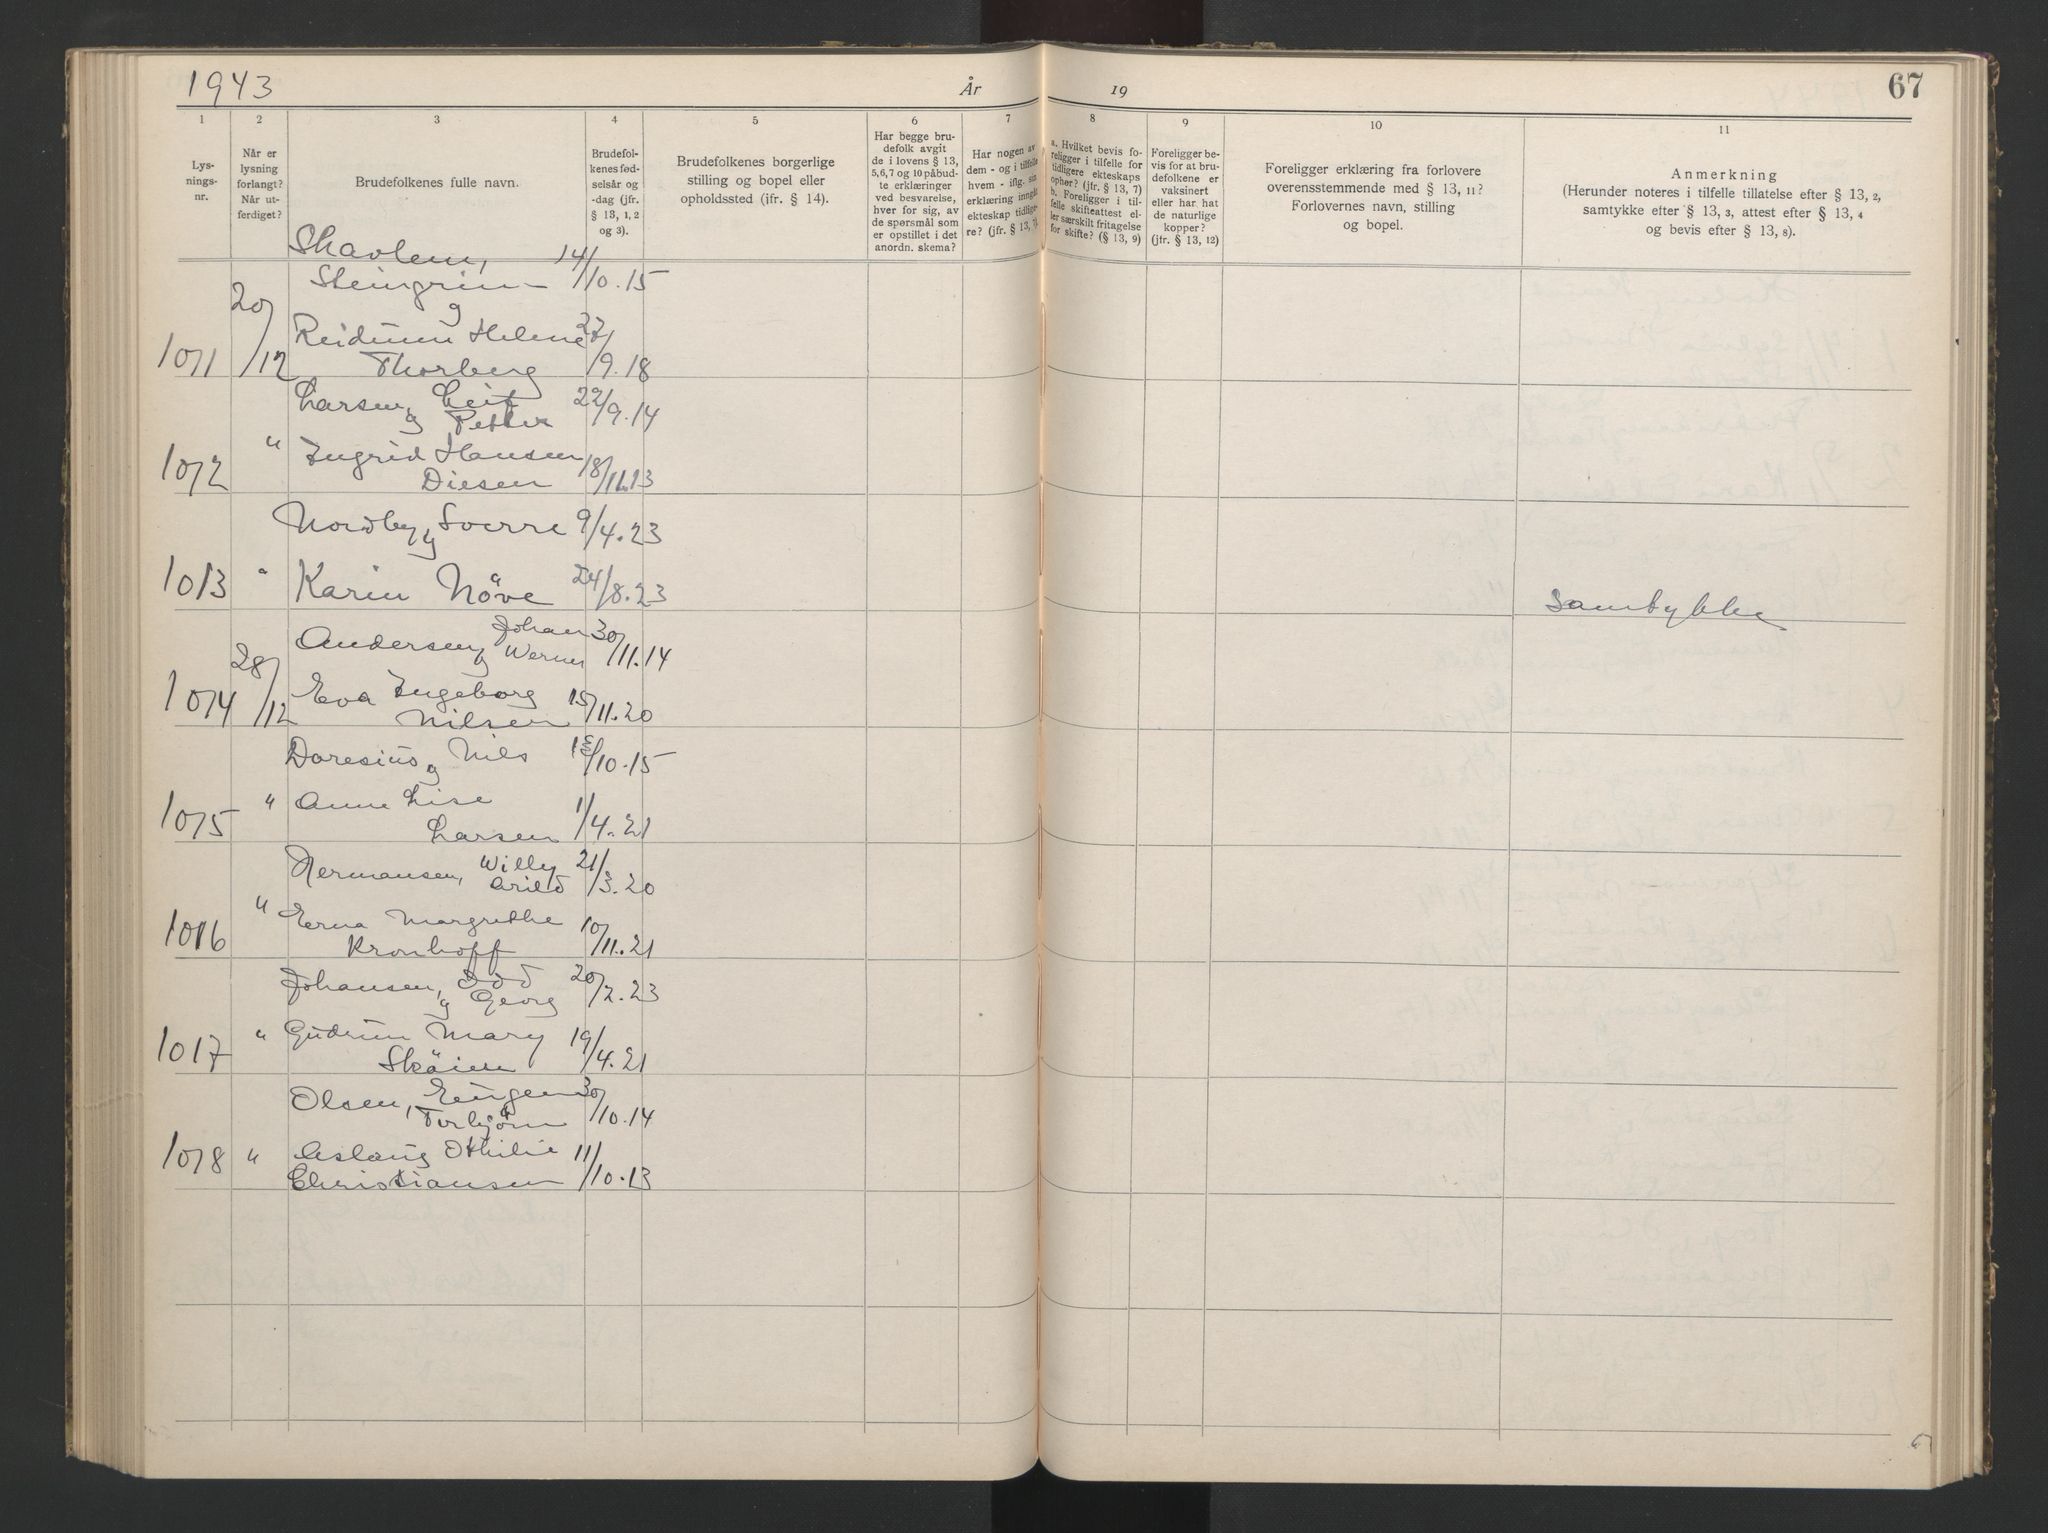 1943
År
19
67
1
2
3
4
5
6
7
8
9
10
11
Lys-
nings-
nr.
Når er
lysning
forlangt?
Når ut-
ferdiget?
Brudefolkenes fulle navn.
Brudefol-
kenes fød-
selsår og
-dag (jfr.
§ 13, 1, 2
og 3).
Brudefolkenes borgerlige
stilling og bopel eller
opholdssted (jfr. § 14).
Har begge bru-
defolk avgit
de i lovens § 13,
5, 6, 7 og 10 påbud-
te erklæringer
ved besvarelse,
hver for sig, av
de spørsmål som
er opstillet i det
anordn. skema?
Har nogen av
dem - og i tilfelle
hvem - iflg. sin
erklæring inngått
ekteskap tidlige-
re? (jfr. § 13, 7).
a. Hvilket bevis fo-
religger i tilfelle for
tidligere ekteskaps
ophør? (jfr. § 13, 7)
b. Foreligger i til-
felle skifteattest el-
ler særskilt fritagelse
for skifte? (§ 13, 9)
Foreligger be-
vis for at bru-
defolkene er
vaksinert
eller har hat
de naturlige
kopper?
(jfr. § 13, 12)
Foreligger erklæring fra forlovere
overensstemmende med § 13, 11?
Forlovernes navn, stilling
og bopel.
Anmerkning
(Herunder noteres i tilfelle tillatelse efter § 13, 2,
samtykke efter § 13, 3, attest efter § 13, 4
og bevis efter § 13, 8).
Skavlem, 14/
Steingrim 10.15
20/ g
Reidunn Helene 22/
1071 /12 Thorberg 9.18
Larsen, Leif 22/9.14
g Petter
" Ingrid Hansen
1072 Diesen 18/11.13
Nordby, Sverre 9/4.23
g
1073 " Karin Növe 24/8.23
Samtykke
Andersen, Johan 30/11.14
g Werner
28/
1074 /12 Eva Ingeborg 15/11.20
Nilsen
Doresius, Nils 13/10.15
g
1075 " Anne Lise 1/4.21
Larsen
Hermansen, Willy 21/3.20
Arild
1076 " Erna Margrethe 10/11.21
Kronhoff
Johansen, Odd 20/2.23
g Georg
1077 " Gudrun Mary 19/4.21
Sköien
Olsen, Eugen 30/10.14
Torbjørn
1078 " Aslaug Othilie 11/10.13
Christiansen